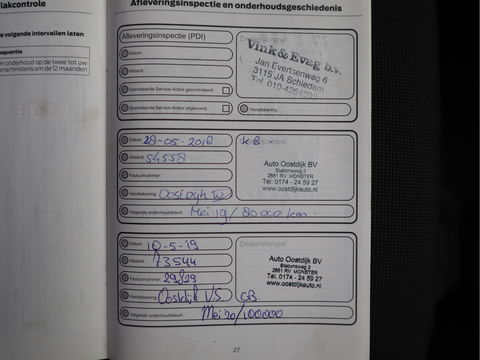 lakcontrole
e volgende intervallen laten
equentie
n onderhoud op de twee tot uw
ma minstens om de 12 maanden
Afleveringsinspectie en onderhoudsgeschiedenis
Afleveringsinspectie (PDI)
Datum:
Afstand:
Openstaande Service-Acties gecontroleerd:
Openstaande Service-Acties uitgevoerd:
Vink & Evag b.v.
Jan Evertsenweg 6
3115 JA Schiedam
Tel. 010-
Handtekening:
Datum: 28-05-2018
Afstand: 54558
Factuurnummer:
Handtekening: Oostdijk
Volgende onderhoudsbeurt: Mei 19/80000 km.
KB
Auto Oostdijk BV
Stationsweg 3
2681 RV MONSTER
Tel. 0174 - 24 59 27
www.oostdijkauto.nl
Datum: 10-5-19
Afstand: 73544
Factuurnummer: 29829
Handtekening: Oostdijk V.S.
Volgende onderhoudsbeurt: Mei 20/100000
Dealerstempel
GB
Auto Oostdijk BV
Stationsweg 3
2681 RV MONSTER
Tel. 0174 - 24 59 27
www.oostdijkauto.nl
27